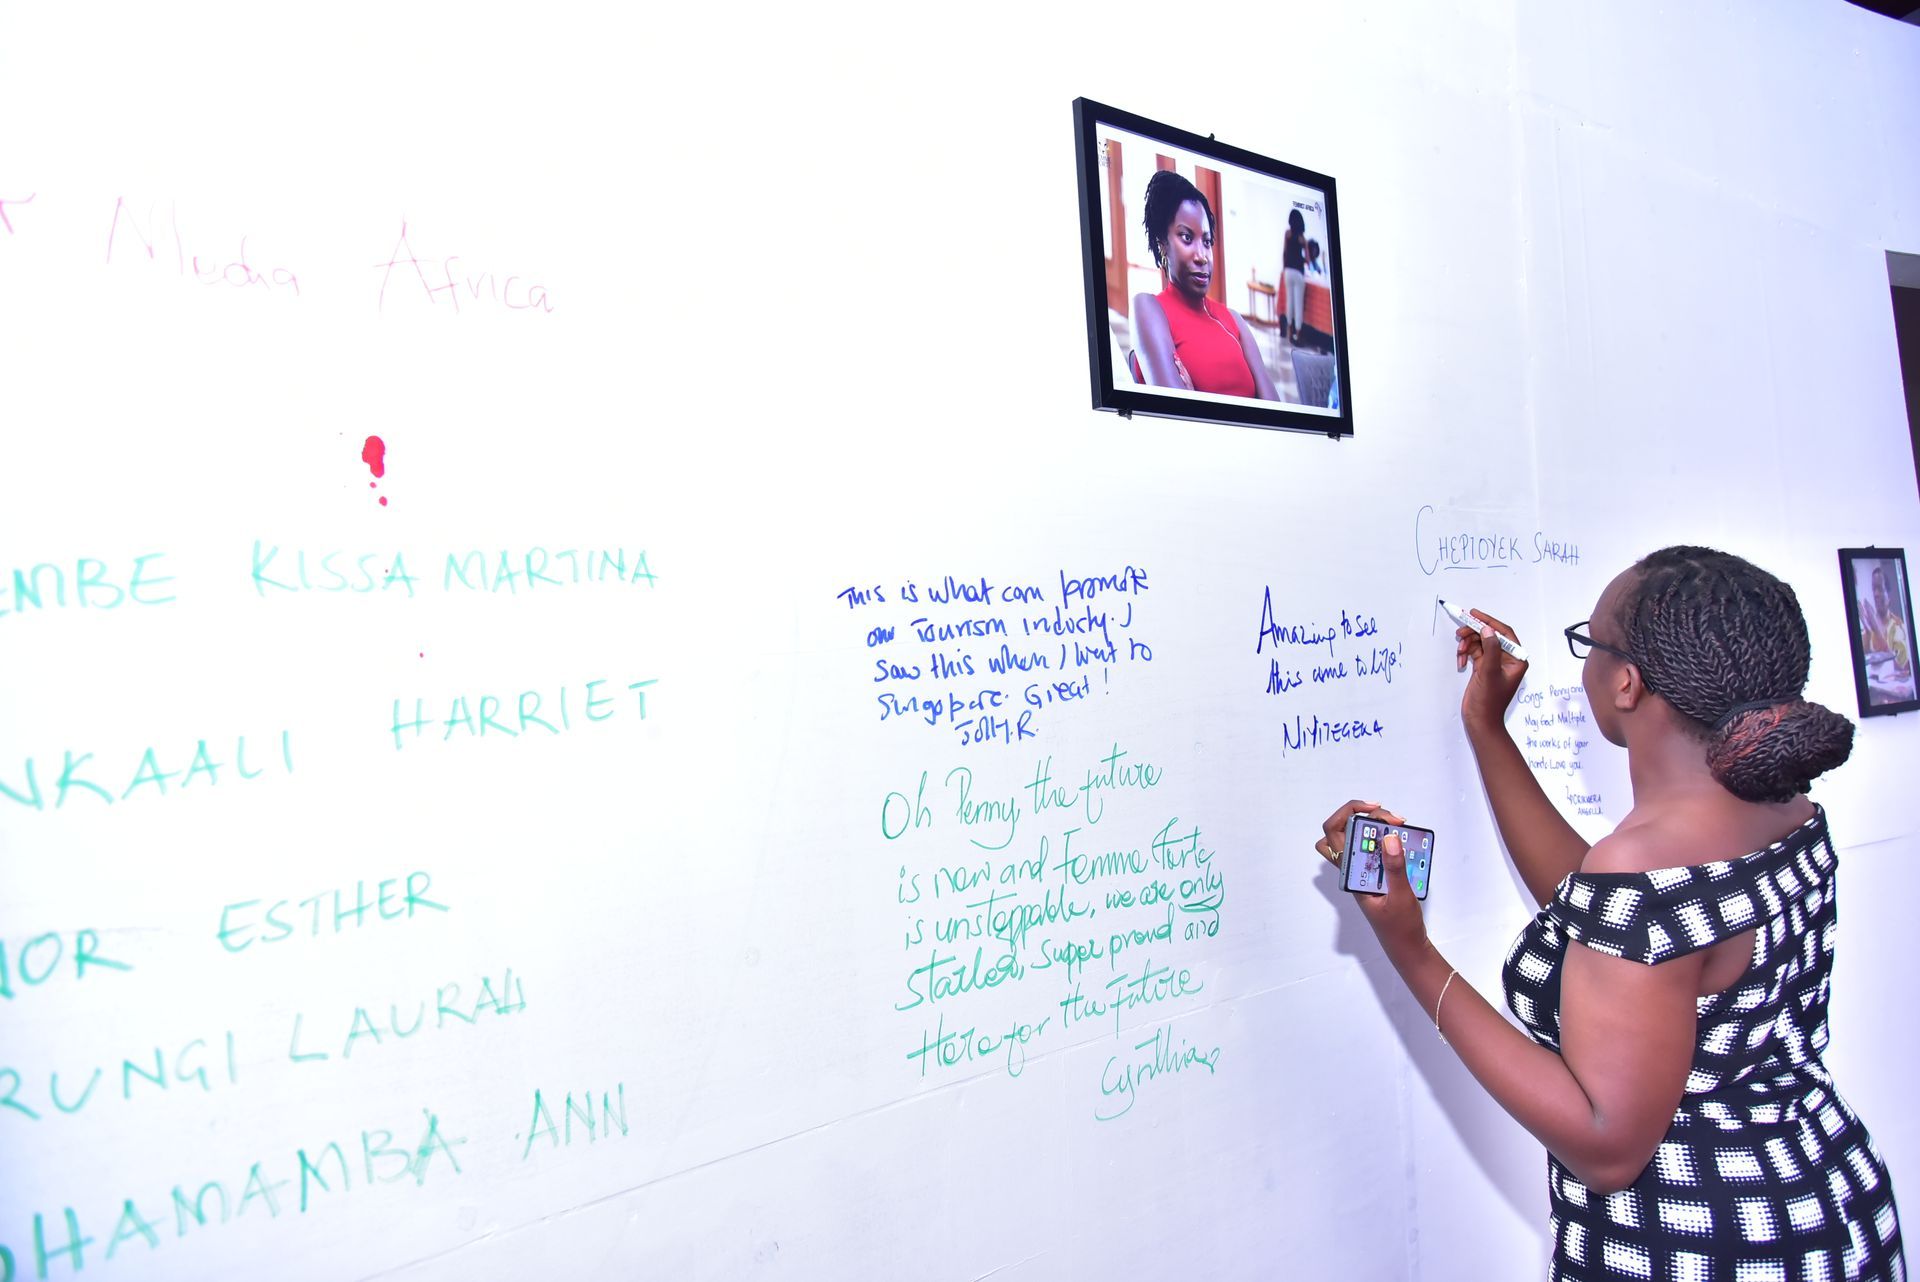 Media Africa
EMBE KISSA MARTINA
NKAALI HARRIET
OR ESTHER
RUNGI LAURAH
HAMAMBA ANN
This is what can promote
our Tourism industry. I
saw this when I went to
Singapore. Great!
Jolly.R.
Oh Penny, the future
is now and Femme Forte
is unstoppable, we are only
started, super proud and
Here for the Future
Cynthia
Amazing to see
this come to life!
NIYITEGEKA
CHEPTOYEK SARAH
Congs Penny and
May God Multiple
the works of your
hands. Love you.
ANGELLA.
FEMINIST AFRICA